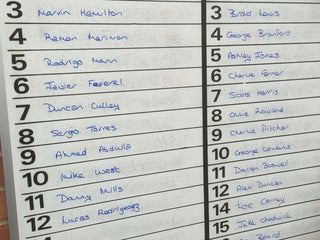 3 Marvin Hamilton
4 Ramon
5 Rodrigo Mann
6 Javier Faverel
7 Duncan Culley
8 Sergio Torres
9 Ahmed Abdulla
10 Mike West
11 Danny Mills
12 Lucas Rodriguez
3 Brad Lewis
4 George Branford
5 Ashley Jones
6 Charlie Farmer
7 Scott Harris
8 Ollie Rowland
9 Charlie Pitcher
10 George
11 Darren Boswell
12 Alex Duncan
14 Carney
15 Jake Chadwick